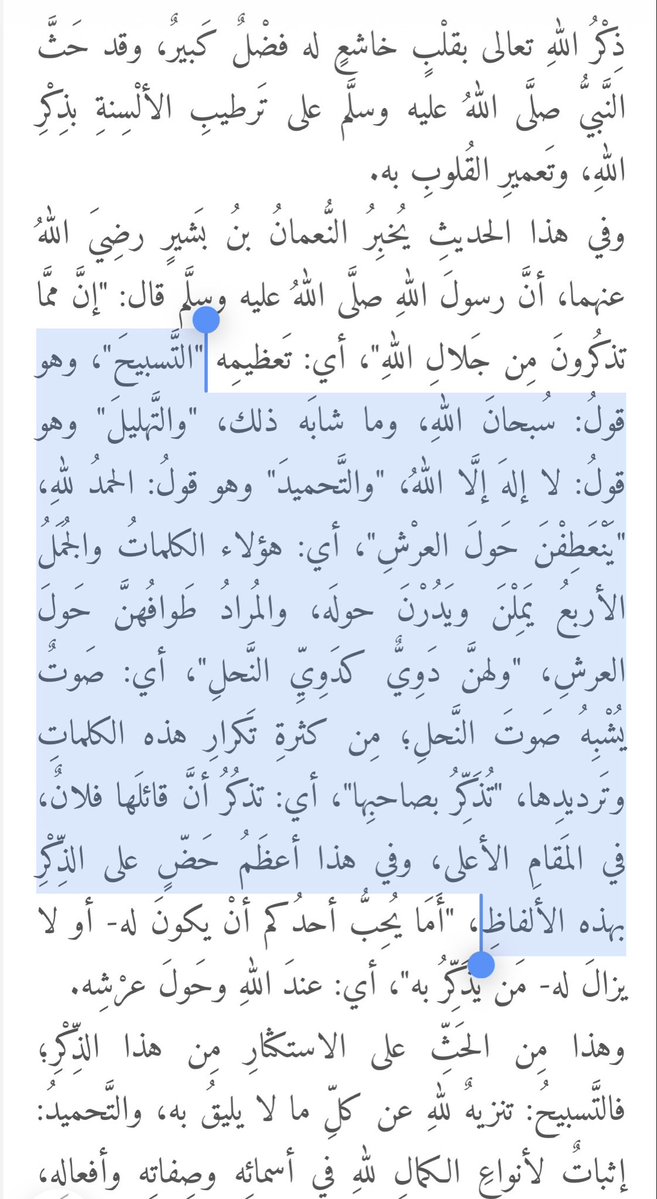 ذِكْرُ اللهِ تعالى بقلْبٍ خاشعٍ له فضْلٌ كَبيرٌ، وقد حَثَّ
النَّبيُّ صلَّى اللهُ عليه وسلَّم على تَرطيبِ الألْسِنةِ بذِكْرِ
اللهِ، وتَعميرِ القُلوبِ به.
وفي هذا الحديثِ يُخبِرُ النُّعمانُ بنُ بَشيرٍ رضِيَ اللهُ
عنهما، أنَّ رسولَ اللهِ صلَّى اللهُ عليه وسلَّم قال: "إنَّ ممَّا
تذكُرونَ مِن جَلالِ اللهِ"، أي: تَعظيمِه "التَّسبيحَ"، وهو
قولُ: سُبحانَ اللهِ، وما شابَه ذلك، "والتَّهليلَ" وهو
قولُ: لا إلهَ إلَّا اللهُ، "والتَّحميدَ" وهو قولُ: الحمدُ للهِ،
"يَنْعَطِفْنَ حَولَ العرْشِ"، أي: هؤلاء الكلماتُ والجُمَلُ
الأربعُ يَمِلْنَ ويَدُرْنَ حولَه، والمُرادُ طَوافُهنَّ حَولَ
العرشِ، "ولهنَّ دَوِيٌّ كدَوِيِّ النَّحلِ"، أي: صَوتٌ
يُشْبِهُ صَوتَ النَّحلِ؛ مِن كثرةِ تَكرارِ هذه الكلماتِ
وتَرديدِها، "تُذَكِّرُ بصاحبِها"، أي: تذكُرُ أنَّ قائلَها فلانٌ،
في المَقامِ الأعلى، وفي هذا أعظَمُ حَضٍّ على الذِّكْرِ
بهذه الألفاظِ، "أَمَا يُحِبُّ أحدُكم أنْ يكونَ له- أو لا
يزالَ له- مَن يُذَكِّرُ به"، أي: عندَ اللهِ وحَولَ عرْشِه.
وهذا مِن الحَثِّ على الاستكثارِ مِن هذا الذِّكْرِ؛
فالتَّسبيحُ: تنزيهٌ للهِ عن كلِّ ما لا يليقُ به، والتَّحميدُ:
إثباتٌ لأنواعِ الكمالِ للهِ في أسمائِه وصِفاتِه وأفعالِه،